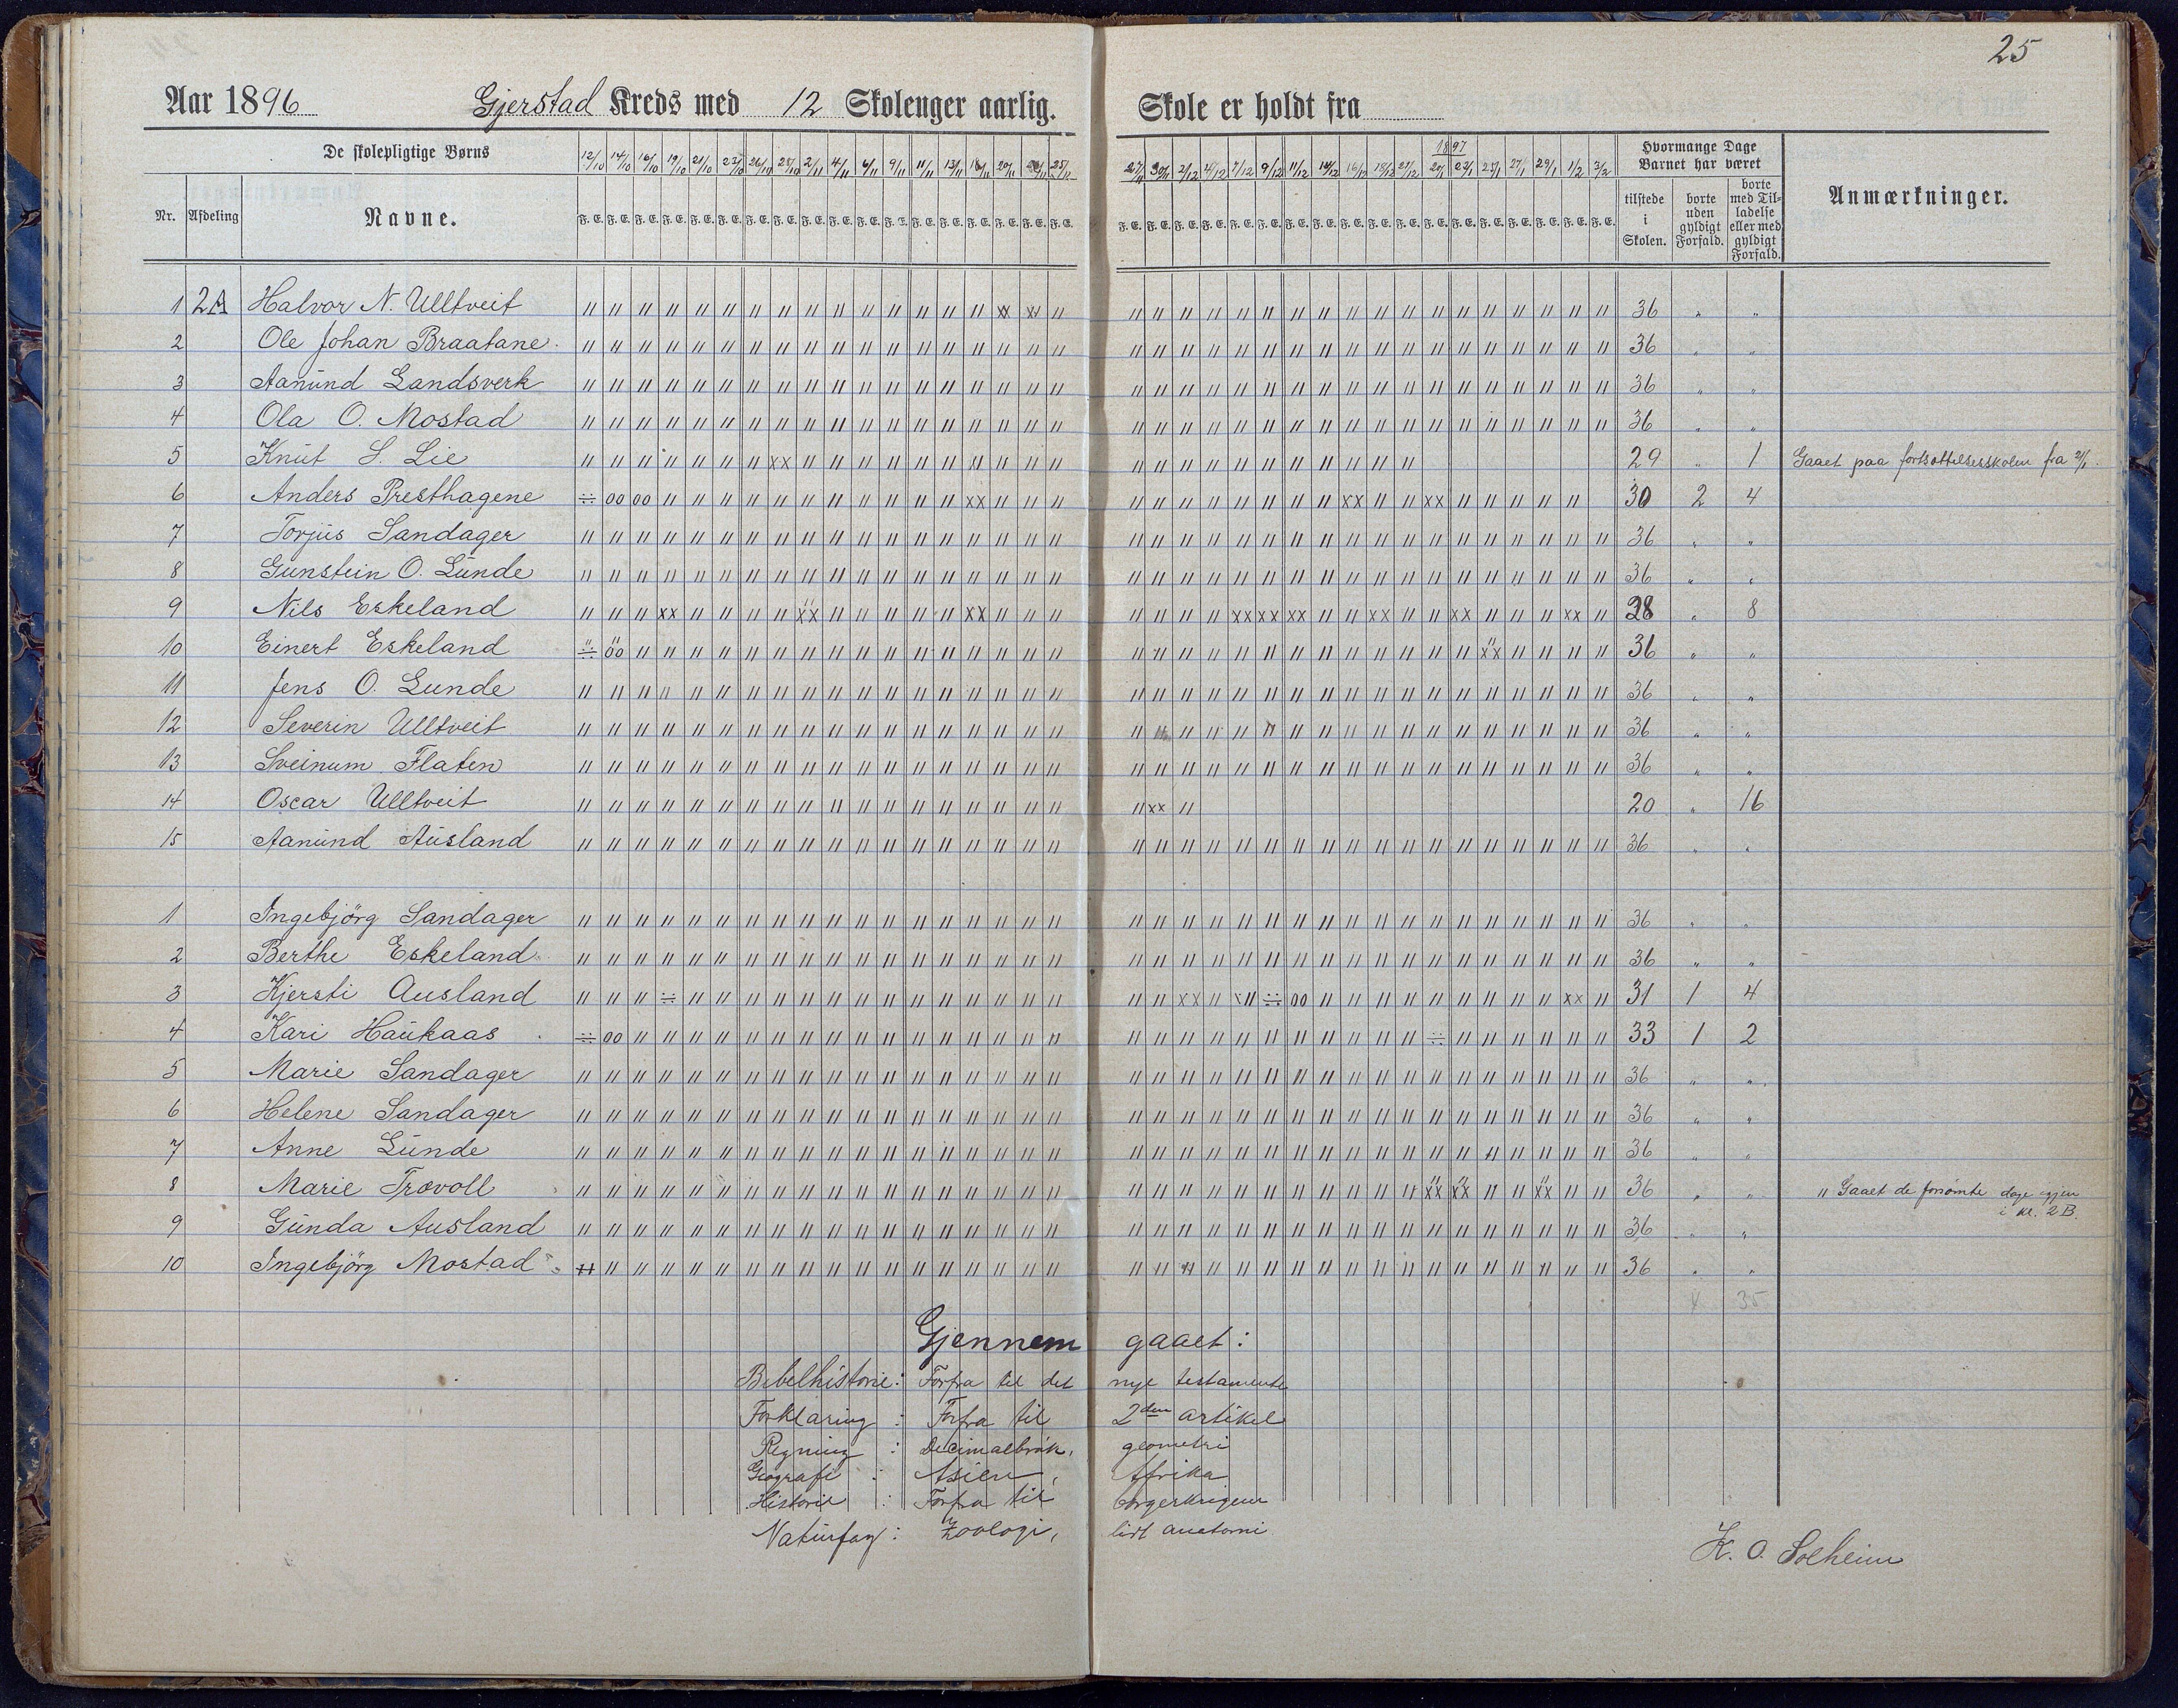 25
Aar 1896 Gjerstad Kreds med 12 Skolenger aarlig. Skole er holdt fra
De skolepligtige Børns
12/10 14/10 16/10 19/10 21/10 23/10 26/10 28/10 2/11 4/11 6/11 9/11 11/11 13/11 18/11 20/11 25/11
27/11 30/11 2/12 4/12 7/12 9/12 11/12 14/12 16/12 18/12 21/12 1897 20/1 22/1 25/1 27/1 29/1 1/2 3/2
Hvormange Dage Barnet har været
Nr. Afdeling Navne. F. E. tilstede i Skolen. borte uden gyldigt Forfald. borte med Til-ladelse eller med gyldigt Forfald. Anmærkninger.
1 2A Halvor N. Ulltveit 36 " "
2 Ole Johan Braatane 36 " "
3 Aanund Landsverk 36 " "
4 Ola O. Mostad 36 " "
5 Knut S. Lie 29 " 1 Gaaet paa fortsættelsesskolen fra 2/1
6 Anders Presthagene 30 2 4
7 Torjus Sandager 36 " "
8 Gunstein O. Lunde 36 " "
9 Nils Eskeland 28 " 8
10 Einert Eskeland 36 " "
11 Jens O. Lunde 36 " "
12 Severin Ulltveit 36 " "
13 Sveinum Flaten 36 " "
14 Oscar Ulltveit 20 " 16
15 Aanund Ausland 36 " "
1 Ingebjörg Sandager 36 " "
2 Berthe Eskeland 36 " "
3 Kjersti Ausland 31 1 4
4 Kari Haukaas 33 1 2
5 Marie Sandager 36 " "
6 Helene Sandager 36 " "
7 Anne Lunde 36 " "
8 Marie Trævoll 36 " " " Gaaet de forsömte dage igjen
i kl. 2B.
9 Gunda Ausland 36 " "
10 Ingebjörg Mostad 36 " "
35
Gjennem gaaet:
Bibelhistorie: Forfra til det nye testamente
Forklaring : Forfra til 2den artikel
Regning : Decimalbrøk, geometri
Geografi : Asien, Afrika
Historie : Forfra til borgerkrigene
Naturfag: Zoologi, lidt anatomi
K. O. Solheim